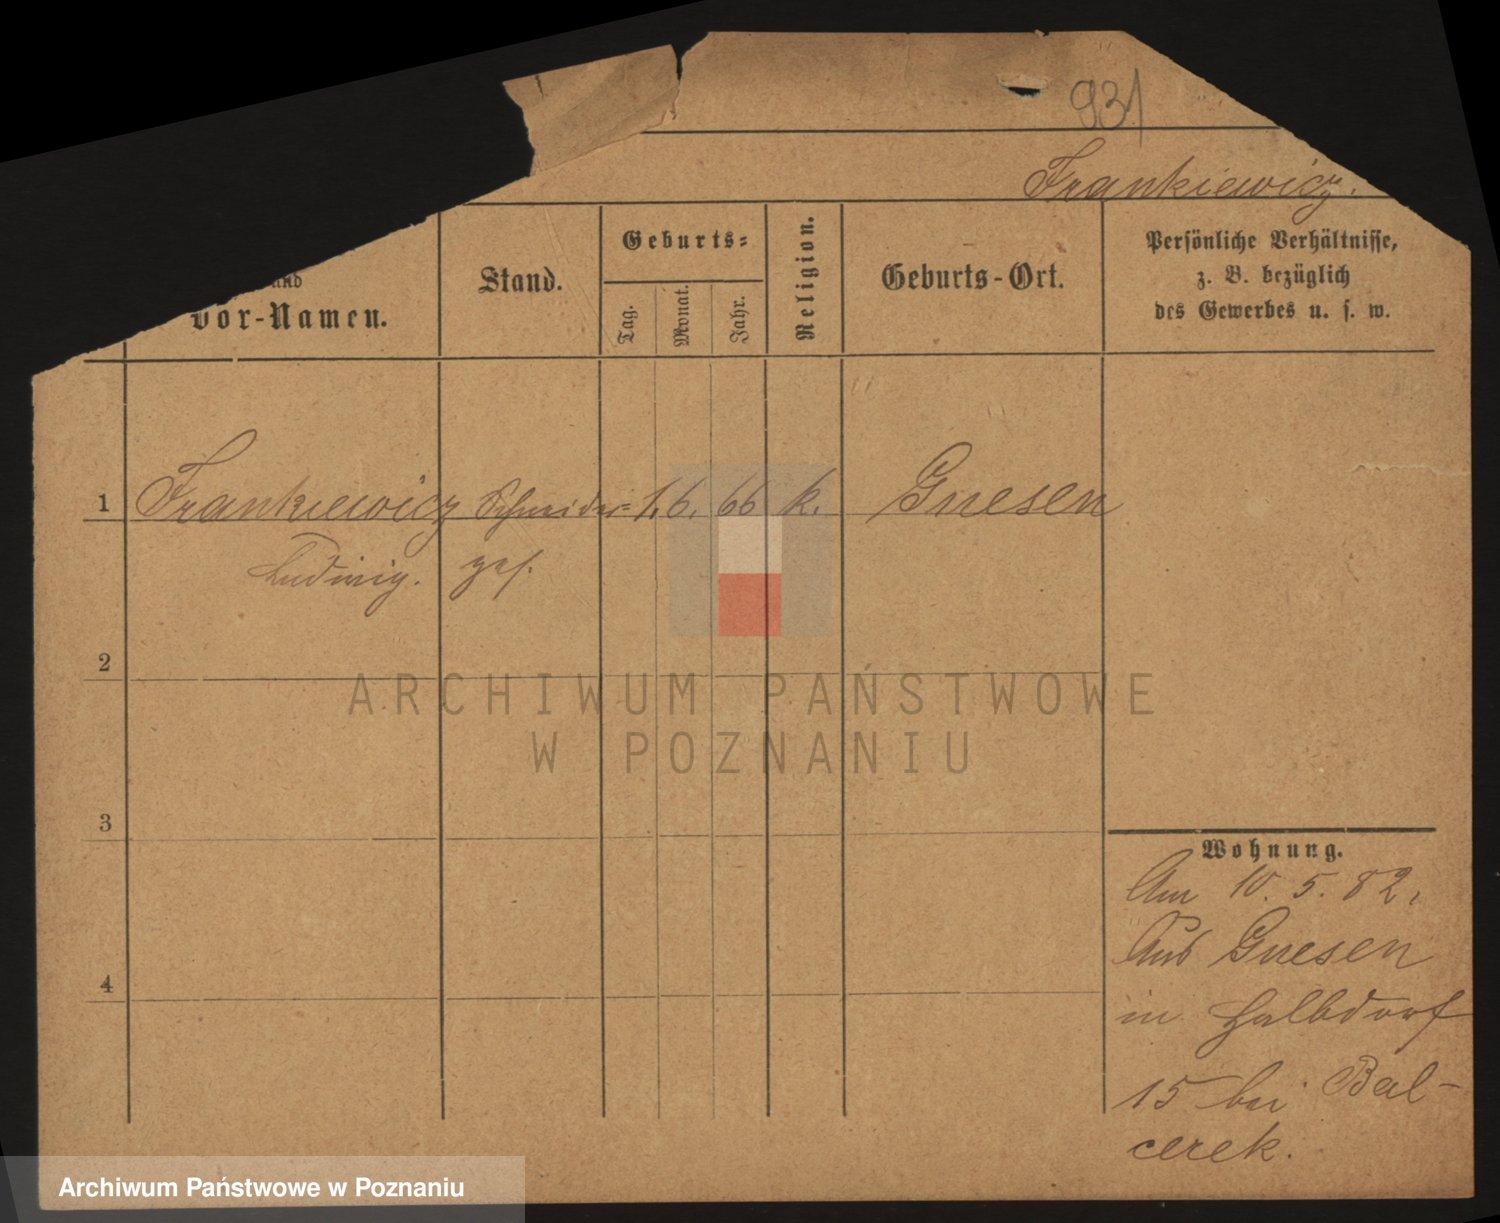 931
Frankiewicz.
und
Vor-Namen.
Stand.
Geburts-
Tag.
Monat.
Jahr.
Religion.
Geburts-Ort.
Persönliche Verhältnisse,
z. B. bezüglich
des Gewerbes u. s. w.
1 Frankiewicz Schneider- 1. 6. 66 k. Gnesen
Ludwig. ges.
2
ARCHIWUM PAŃSTWOWE
W POZNANIU
3
Wohnung.
Am 10. 5. 82.
Aus Gnesen
in Halbdorf
4
15 bei Bal-
cerek.
Archiwum Państwowe w Poznaniu